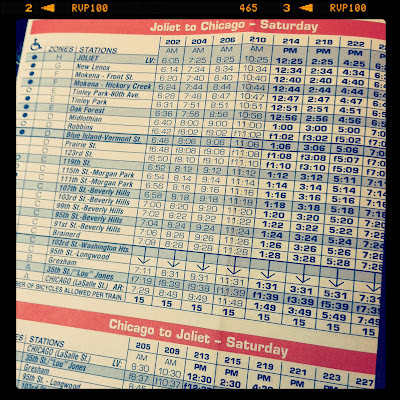 2 RVP100 465 3 RVP100
Joliet to Chicago – Saturday
202 204 206 210 214 218 222
ZONES STATIONS AM AM AM AM PM PM PM
H JOLIET LV: 6:05 7:25 8:25 10:25 12:25 2:25 4:25
G New Lenox 6:14 7:34 8:34 10:34 12:34 2:34 4:34
F Mokena - Front St. 6:20 7:40 8:40 10:40 12:40 2:40 4:40
F Mokena - Hickory Creek 6:24 7:44 8:44 10:44 12:44 2:44 4:44
E Tinley Park-80th Ave. 6:28 7:48 8:47 10:47 12:47 2:47 4:47
E Tinley Park 6:31 7:51 8:51 10:51 12:51 2:51 4:51
Oak Forest 6:36 7:56 8:56 10:56 12:56 2:56 4:56
Midlothian 6:40 8:00 9:00 11:00 1:00 3:00 5:00
D Robbins f6:42 f8:02 f9:02 f11:02 f1:02 f3:02 f5:02
D Blue Island-Vermont St. 6:46 8:06 9:06 11:06 1:06 3:06 5:06
Prairie St.
123rd St. f6:50 f8:10 f9:10 f11:10 f1:10 f3:10 f5:09
C 119th St. 6:52 8:12 9:12 11:12
C 115th St.-Morgan Park 8:14 9:14 11:14 1:14 3:14 5:14
C 111th St.-Morgan Park 6:56 8:16 9:16 11:16 1:16 3:16 5:16
C 107th St.-Beverly Hills 6:58 8:18 9:18 11:18 1:18 3:18 5:18
C 103rd St.-Beverly Hills 7:00 8:20 9:20 11:20 1:20 3:20 5:20
C 99th St.-Beverly Hills 7:02 8:22 9:22 11:22 1:22 3:22 5:22
95th St.-Beverly Hills 7:04 8:24 9:24 11:24 1:24 3:24 5:24
91st St.-Beverly Hills 7:06 8:26 9:26 11:26 1:26 3:26 5:26
Brainerd 7:08 8:28 9:28 11:28 1:28 3:28 5:28
103rd St.-Washington Hts
95th St.-Longwood
Gresham 7:11 8:31 9:31 11:31 1:31 3:31 5:31
35th St.-"Lou" Jones f7:19 f8:39 f9:39 f11:39 f1:39 f3:39 f5:39
CHICAGO (LaSalle St.) AR: 7:29 8:49 9:49 11:49 1:49 3:49 5:49
BER OF BICYCLES ALLOWED PER TRAIN. 15 15 15 15 15 15 15
Chicago to Joliet – Saturday
205 209 213 215 219 221
STATIONS AM AM PM PM PM PM
CHICAGO (LaSalle St.) LV: 8:30 10:30 12:30 2:30
35th St. "Lou" Jones f8:37 f10:37
Gresham
95th St.-Longwood